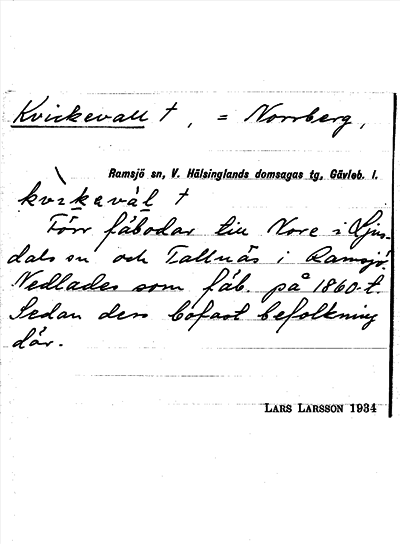 Kvickevall †, = Norrberg,
Ramsjö sn, V. Hälsinglands domsagas tg, Gävleb. l.
kvìkevál †
Förr fäbodar till Nore i Ljus-
dals sn och Tallnäs i Ramsjö.
Nedlades som fäb. på 1860-t.
Sedan dess bofast befolkning
där.
LARS LARSSON 1934